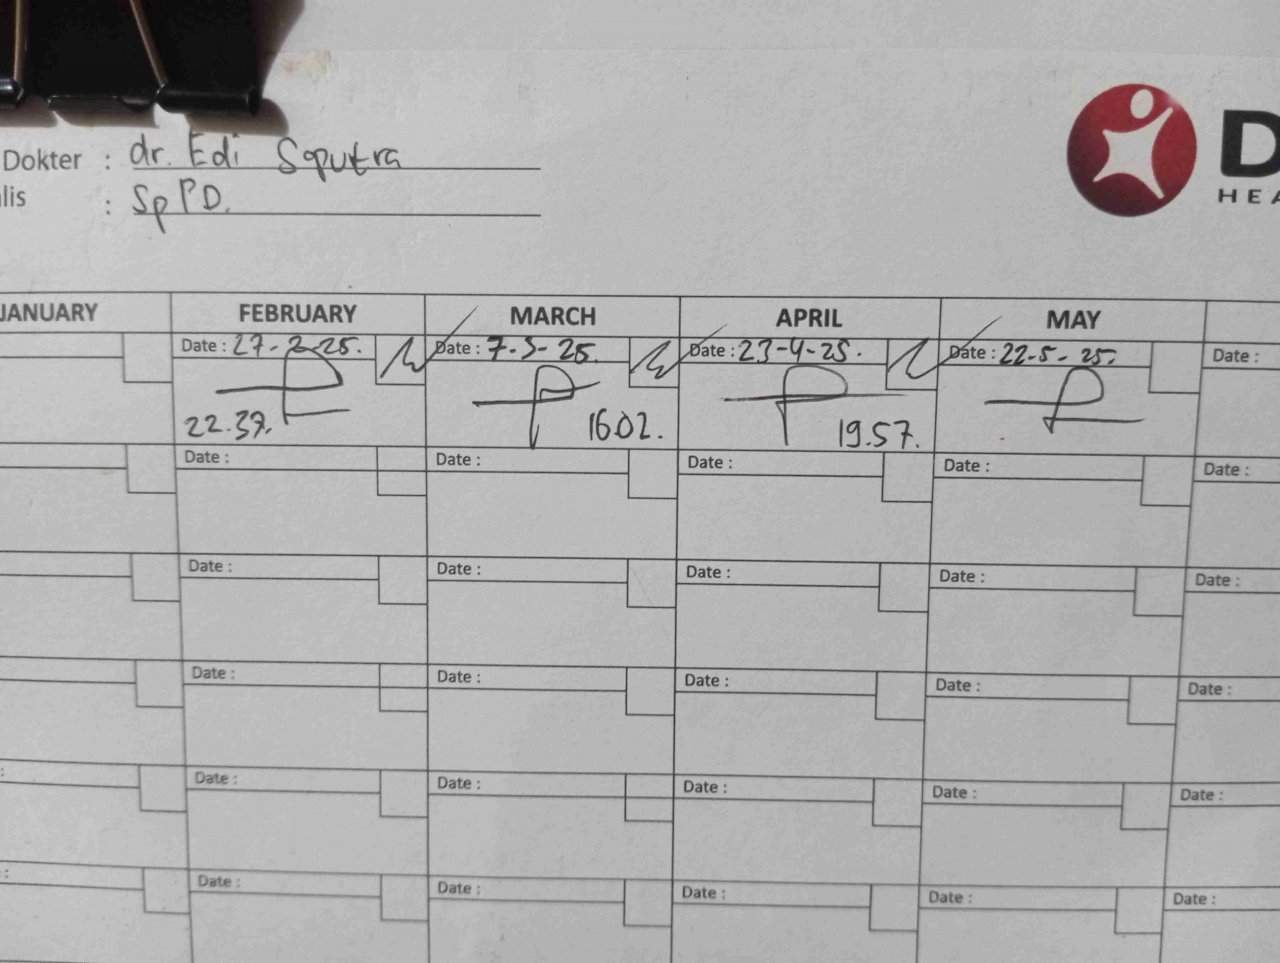 Dokter : dr. Edi Saputra
lis : SpPD.
D
HEA
JANUARY FEBRUARY MARCH APRIL MAY
Date : 27-2-25. Date : 7-3-25. Date : 23-4-25. Date : 22-5-25. Date :
22.37. 16.02. 19.57.
Date : Date : Date : Date : Date :
Date : Date : Date : Date : Date :
Date : Date : Date : Date : Date :
: Date : Date : Date : Date : Date :
: Date : Date : Date : Date : Date :